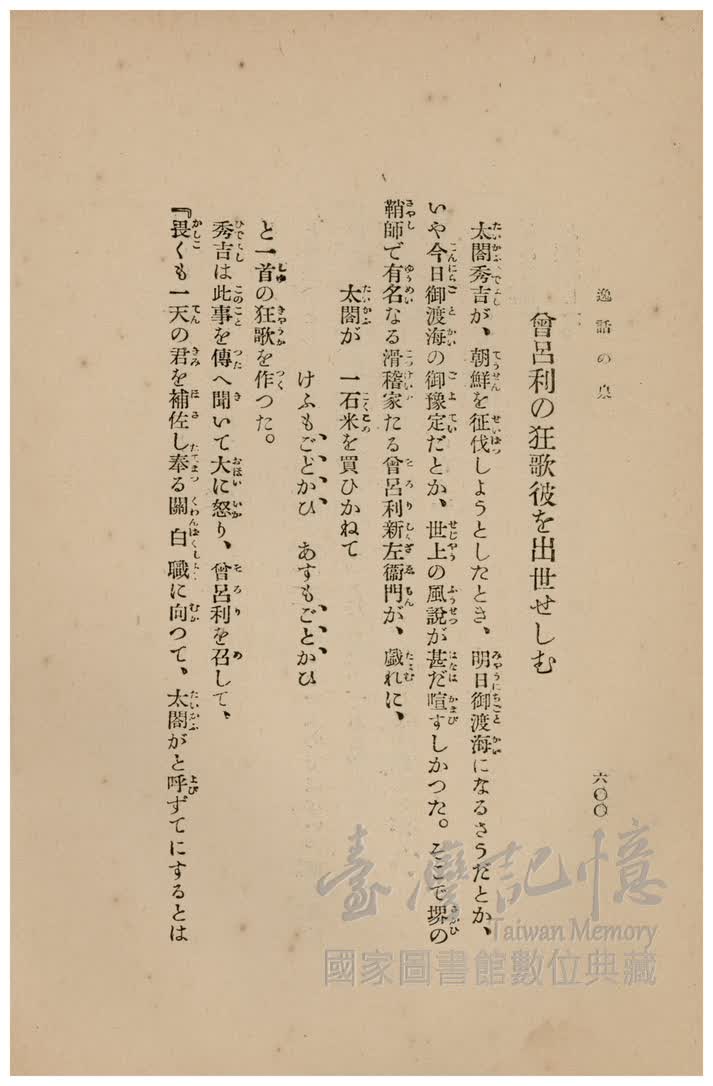 逸話の泉
六〇〇
曾呂利の狂歌彼を出世せしむ
太閤秀吉が、朝鮮を征伐しようとしたとき、明日御渡海になるさうだとか、
いや今日御渡海の御豫定だとか、世上の風說が甚だ喧すしかつた。そこで堺の
鞘師で有名なる滑稽家たる曾呂利新左衞門が、戯れに、
太閤が　一石米を買ひかねて
けふもごとかひ　あすもごとかひ
と一首の狂歌を作つた。
秀吉は此事を傳へ聞いて大に怒り、曾呂利を召して、
『畏くも一天の君を補佐し奉る關白職に向つて、太閤がと呼ずてにするとは
臺灣記憶
Taiwan Memory
國家圖書館數位典藏